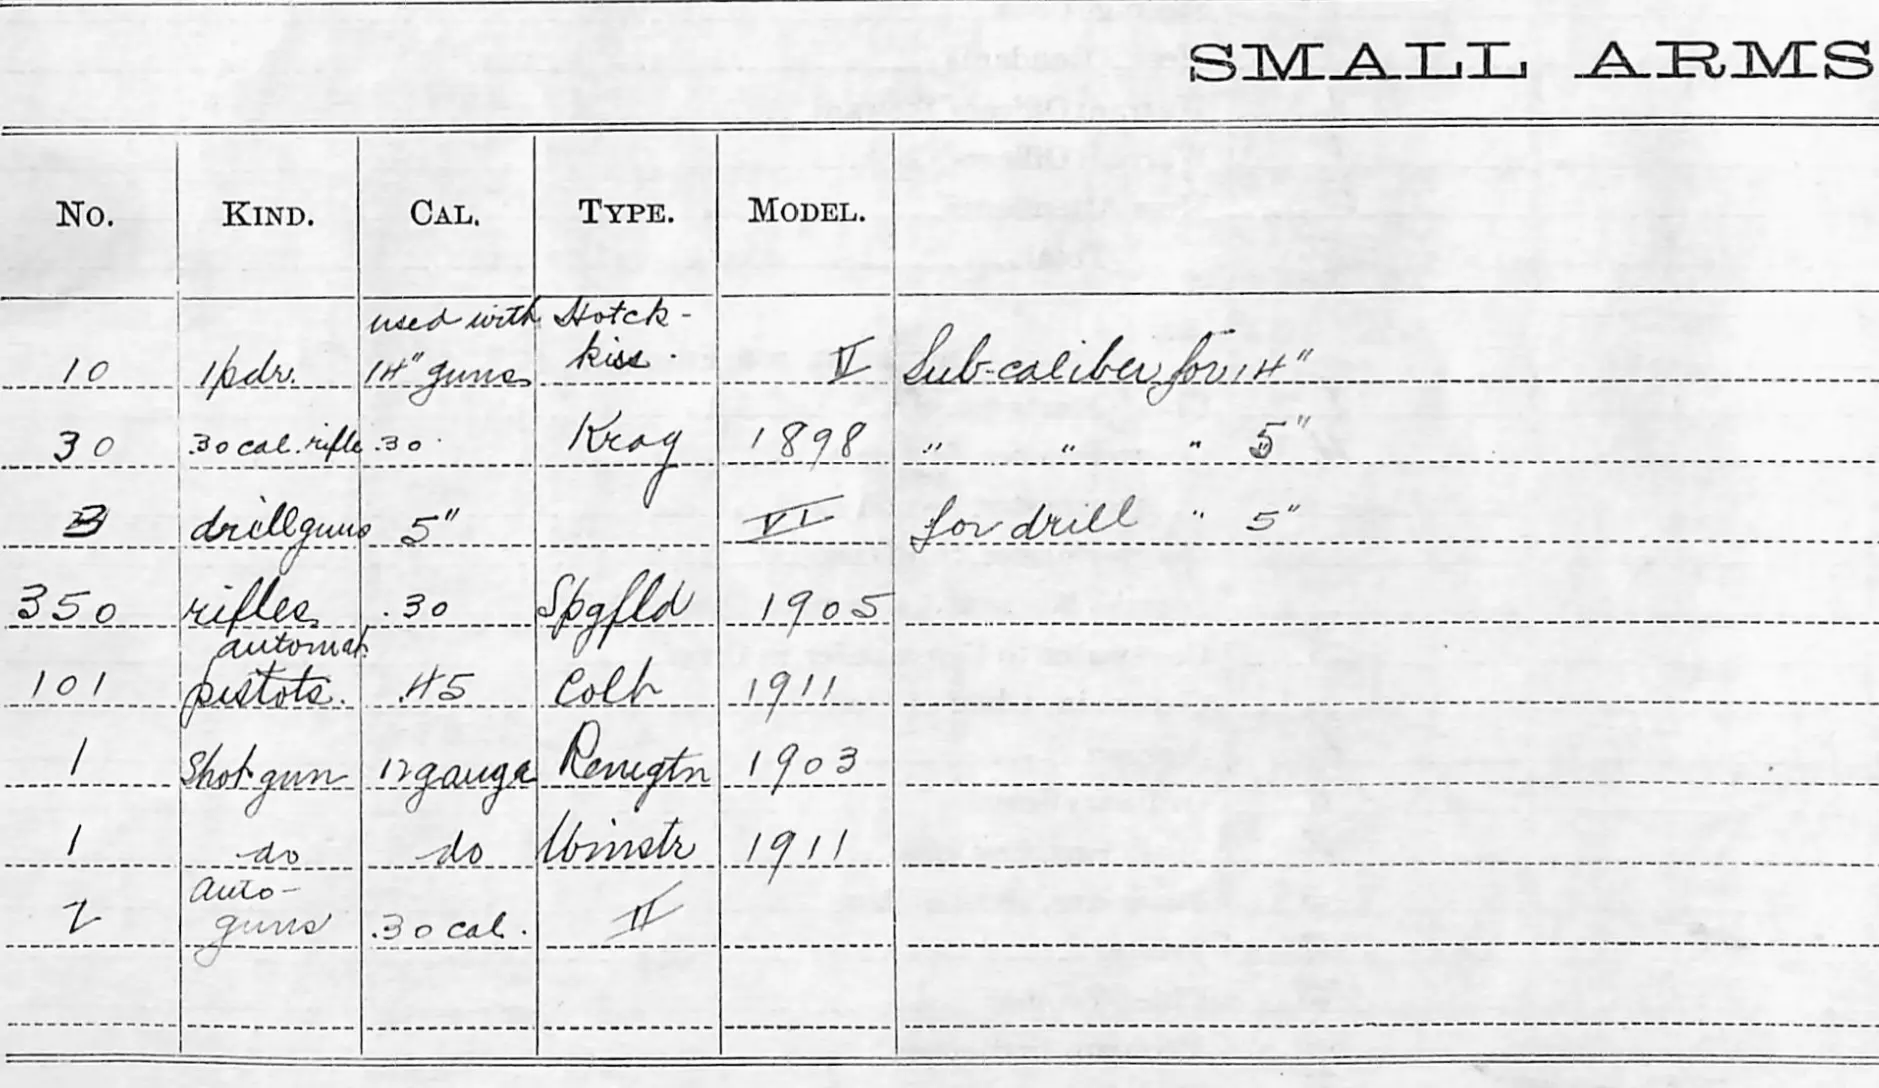 SMALL ARMS
No. KIND. CAL. TYPE. MODEL.
used with Hotch-
10 1pdr. 14" guns kiss. II Sub-caliber for 14"
30 .30 cal. rifle .30 Krag 1898 " " " 5"
3 drill guns 5" VI for drill " 5"
350 rifles .30 Spgfld 1905
automat
101 pistols. .45 Colt 1911
1 Shot gun 12 gauge Remgtn 1903
1 do do Winstr 1911
auto-
2 guns .30 cal. II